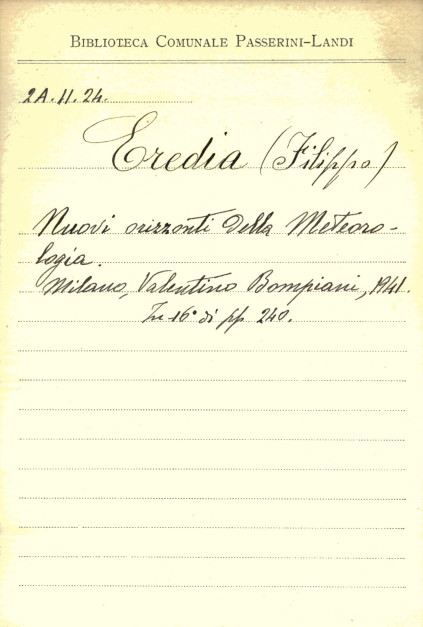 BIBLIOTECA COMUNALE PASSERINI-LANDI
2A.II.24.
Eredia (Filippo)
Nuovi orizzonti della Meteoro-
logia.
Milano, Valentino Bompiani, 1941.
In 16° di pp 240.